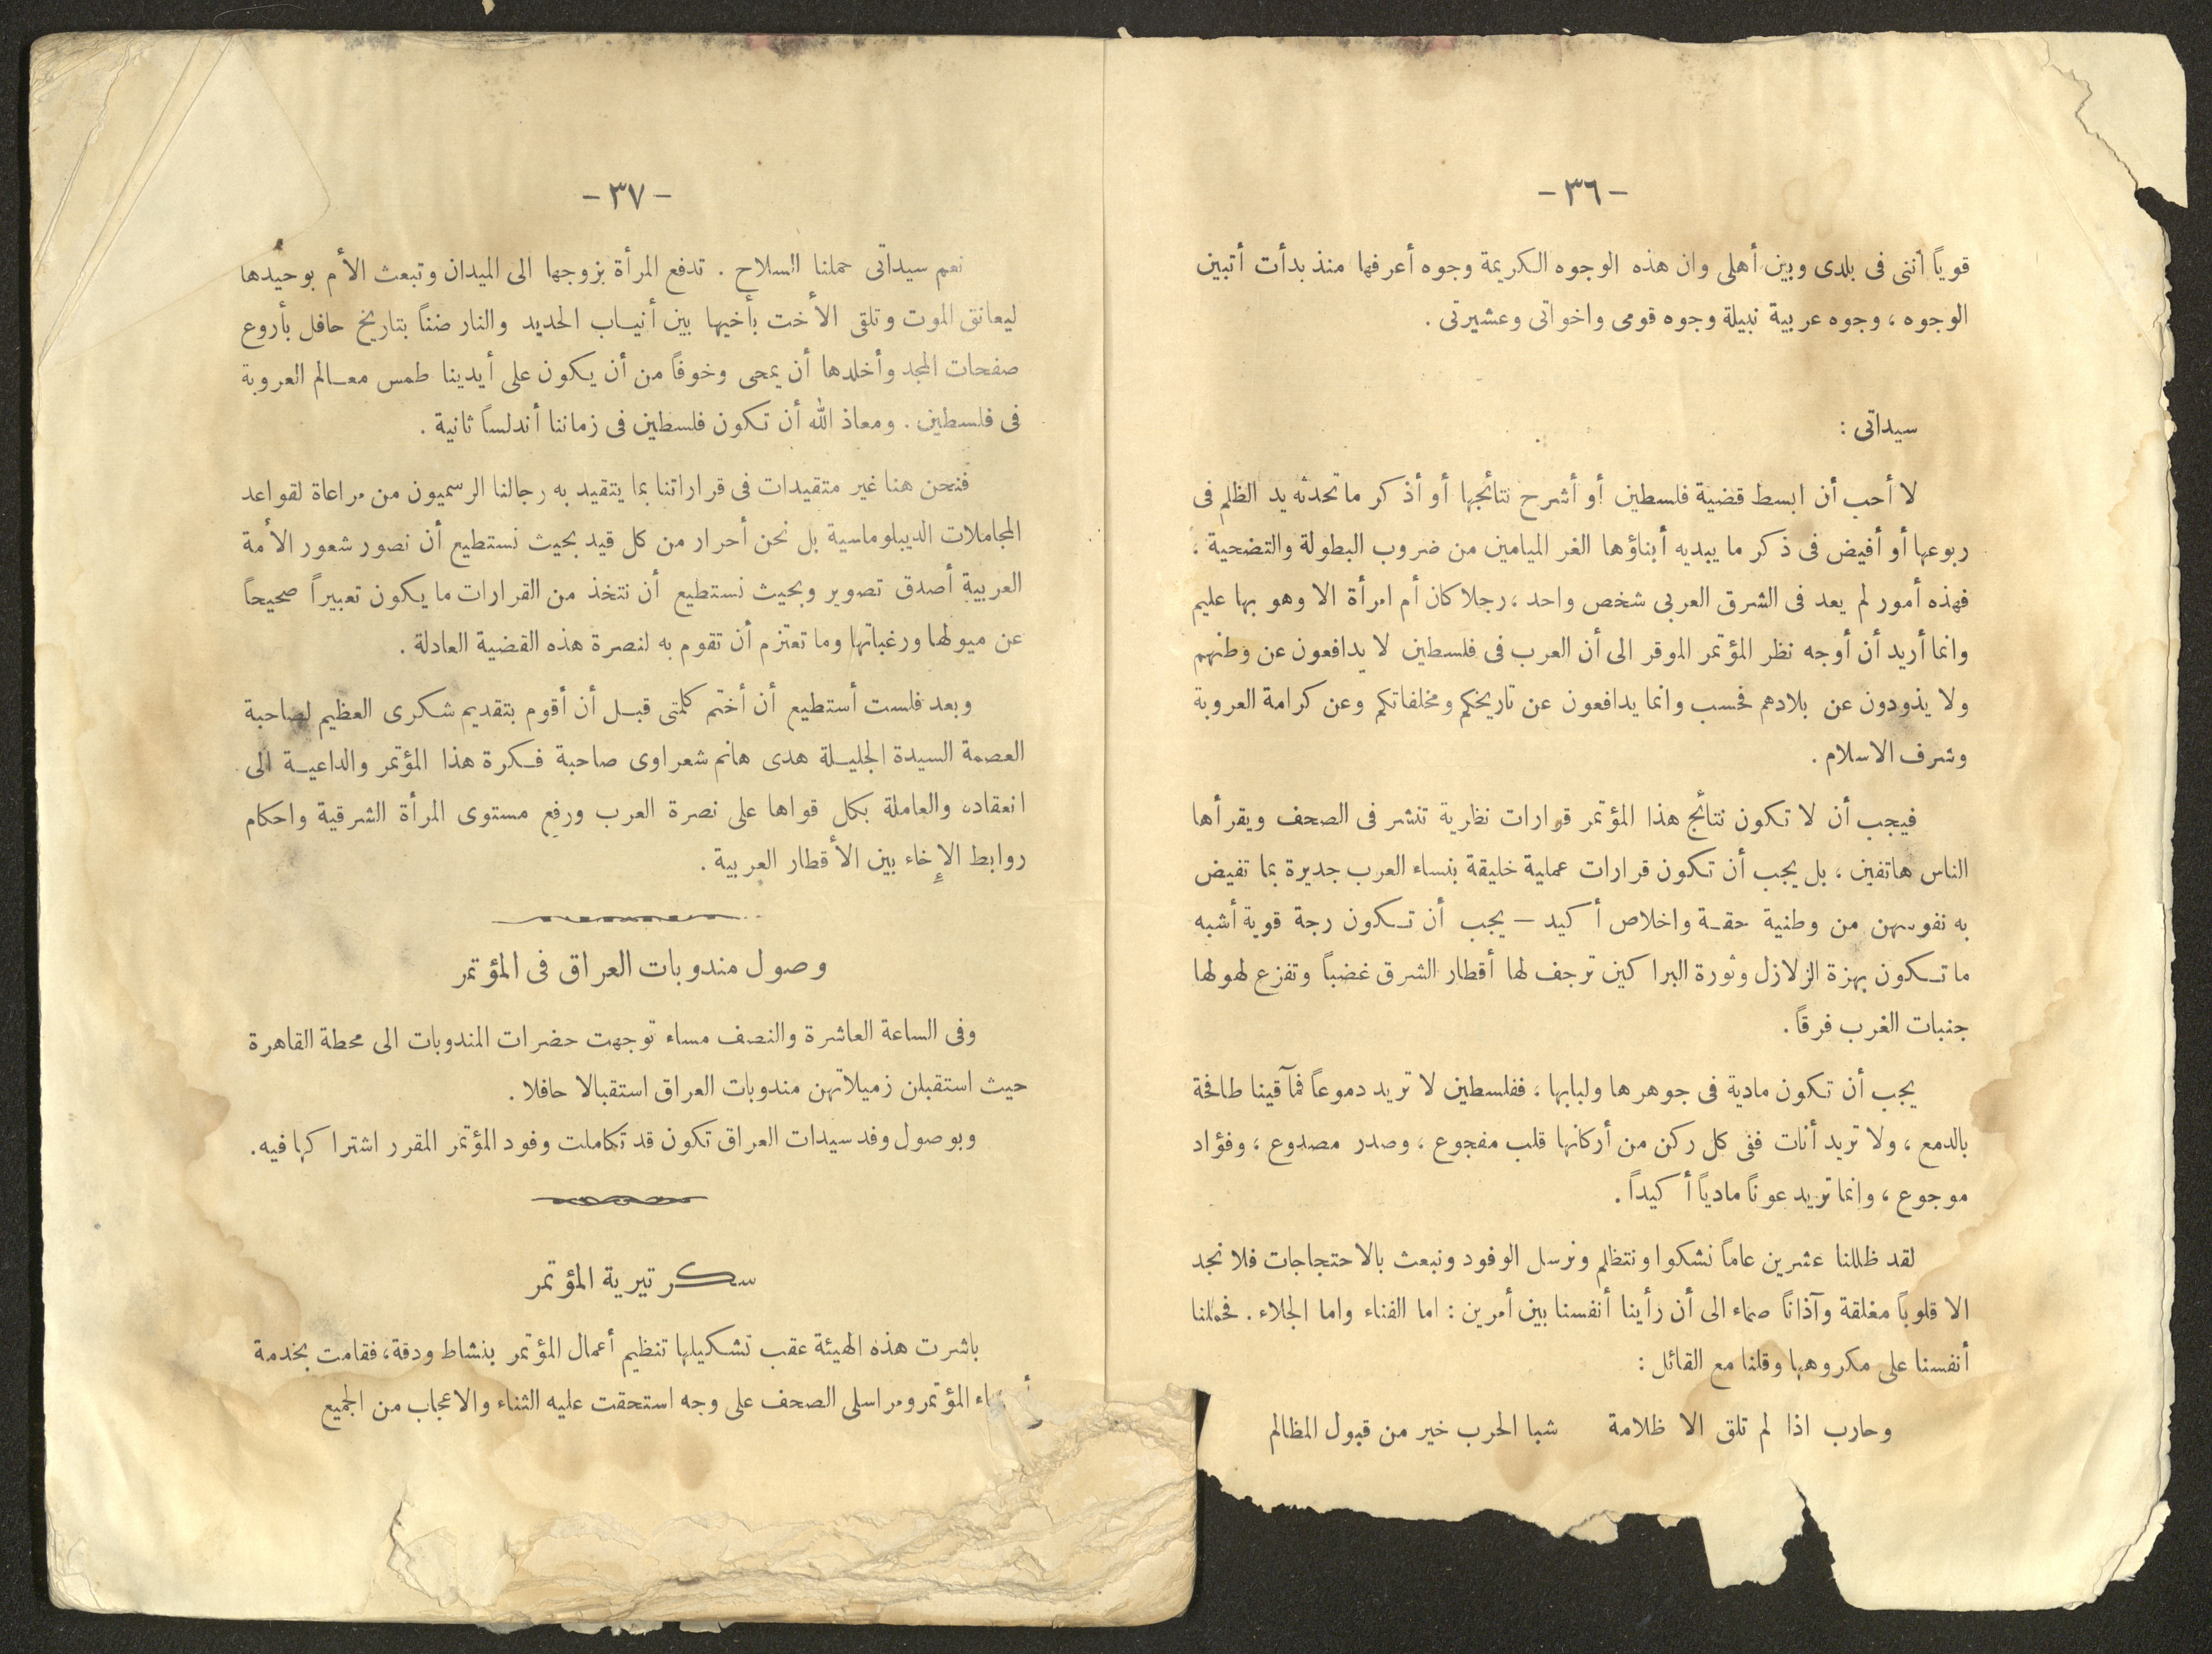 - ٣٦ -
قوياً أننى فى بلدى وبين أهلى وان هذه الوجوه الكريمة وجوه أعرفها منذ بدأت أتبين
الوجوه ، وجوه عربية نبيلة وجوه قومى واخواتى وعشيرتى .
سيداتى :
لا أحب أن ابسط قضية فلسطين أو أشرح نتائجها أو أذكر ماتحدثه يد الظلم فى
ربوعها أو أفيض فى ذكر ما يبديه أبناؤها الغر الميامين من ضروب البطولة والتضحية ،
فهذه أمور لم يعد فى الشرق العربى شخص واحد ، رجلا كان أم امرأة الا وهو بها عليم
وانما أريد أن أوجه نظر المؤتمر الموقر الى أن العرب فى فلسطين لا يدافعون عن وطنهم
ولا يذودون عن بلادهم فحسب وانما يدافعون عن تاريخكم ومخلفاتكم وعن كرامة العروبة
وشرف الاسلام .
فيجب أن لا تكون نتائج هذا المؤتمر قرارات نظرية تنشر فى الصحف ويقرأها
الناس هاتفين ، بل يجب أن تكون قرارات عملية خليقة بنساء العرب جديرة بما تفيض
به نفوسهن من وطنية حقة واخلاص أكيد — يجب أن تكون رجة قوية أشبه
ما تكون بهزة الزلازل وثورة البراكين ترجف لها أقطار الشرق غضباً وتفزع لهولها
جنبات الغرب فرقاً .
يجب أن تكون مادية فى جوهرها ولبابها ، ففلسطين لا تريد دموعاً فمآقينا طافحة
بالدمع ، ولا تريد أنات ففى كل ركن من أركانها قلب مفجوع ، وصدر مصدوع ، وفؤاد
موجوع ، وانما تريد عوناً مادياً أكيداً .
لقد ظللنا عشرين عاماً نشكوا ونتظلم ونرسل الوفود ونبعث بالاحتجاجات فلا نجد
الا قلوباً مغلقة وآذاناً صماء الى أن رأينا أنفسنا بين أمرين : اما الفناء واما الجلاء . فحملنا
أنفسنا على مكروهها وقلنا مع القائل :
وحارب اذا لم تلق الا ظلامة شبا الحرب خير من قبول المظالم
- ٣٧ -
نعم سيداتى حملنا السلاح . تدفع المرأة بزوجها الى الميدان وتبعث الأم بوحيدها
ليعانق الموت وتلقى الأخت بأخيها بين أنياب الحديد والنار ضناً بتاريخ حافل بأروع
صفحات المجد وأخلدها أن يمحى وخوفاً من أن يكون على أيدينا طمس معالم العروبة
فى فلسطين . ومعاذ الله أن تكون فلسطين فى زماننا أندلساً ثانية .
فنحن هنا غير متقيدات فى قراراتنا بما يتقيد به رجالنا الرسميون من مراعاة لقواعد
المجاملات الديبلوماسية بل نحن أحرار من كل قيد بحيث نستطيع أن نصور شعور الأمة
العربية أصدق تصوير وبحيث نستطيع أن نتخذ من القرارات ما يكون تعبيراً صحيحاً
عن ميولها ورغباتها وما تعتزم أن تقوم به لنصرة هذه القضية العادلة .
وبعد فلست أستطيع أن أختم كلمتى قبل أن أقوم بتقديم شكرى العظيم لصاحبة
العصمة السيدة الجليلة هدى هانم شعراوى صاحبة فكرة هذا المؤتمر والداعية الى
انعقاده والعاملة بكل قواها على نصرة العرب ورفع مستوى المرأة الشرقية واحكام
روابط الإخاء بين الأقطار العربية .
وصول مندوبات العراق فى المؤتمر
وفى الساعة العاشرة والنصف مساء توجهت حضرات المندوبات الى محطة القاهرة
حيث استقبلن زميلاتهن مندوبات العراق استقبالا حافلا .
وبوصول وفد سيدات العراق تكون قد تكاملت وفود المؤتمر المقرر اشتراكها فيه .
سكرتيرية المؤتمر
باشرت هذه الهيئة عقب تشكيلها تنظيم أعمال المؤتمر بنشاط ودقة ، فقامت بخدمة
المؤتمر ومراسلى الصحف على وجه استحقت عليه الثناء والاعجاب من الجميع